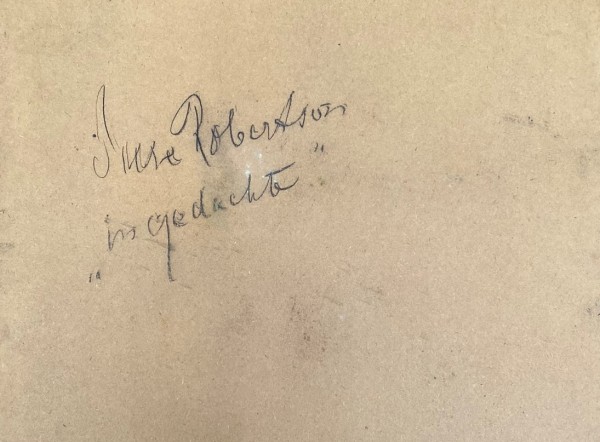 Suse Robertson
„in gedachte”